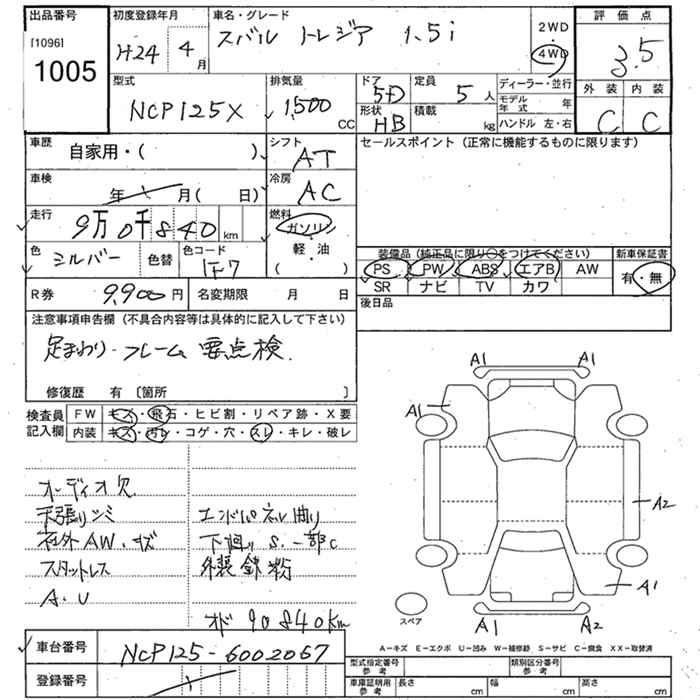 出品番号
[1096]
1005
初度登録年月
H24 4月
車名・グレード
スバル トレジア 1.5i
2WD
4WD
評価点
3.5
外装 内装
C C
型式
NCP125X
排気量
1,500 CC
ドア
5D
形状
HB
定員
5人
積載
kg
ディーラー・並行
モデル年式 年
ハンドル 左・右
車歴
自家用・( )
シフト
AT
セールスポイント (正常に機能するものに限ります)
車検
年 月( 日)
冷房
AC
走行
9万0千840km
燃料
ガソリン
軽・油
( )
色
シルバー
色替
色コード
1F7
装備品 (補正品に限り○をつけてください)
新車保証書
PS PW ABS エアB AW
有・無
SR ナビ TV カワ
R券
9,900円
名変期限 月 日
後日品
注意事項申告欄 (不具合内容等は具体的に記入して下さい)
足まわり・フレーム 要点検
修復歴 有 [箇所 ]
検査員記入欄
FW キズ・飛石・ヒビ割・リペア跡・X要
内装 キズ・汚レ・コゲ・穴・スレ・キレ・破レ
オーディオ欠
下張りシミ
社外AW・キズ
スタットレス
A.U
エンドパネル曲り
下廻り S.一部C
外装鉄粉
オド 90840km
A1 A1
A1
A2
A1
A1 A2
スペア
車台番号
NCP125-6002067
登録番号
A−キズ E−エクボ U−凹み W−補修跡 S−サビ C−腐食 XX−取替済
型式指定番号 参考
類別区分番号 参考
車庫証明用 参考
長さ cm
幅 cm
高さ cm